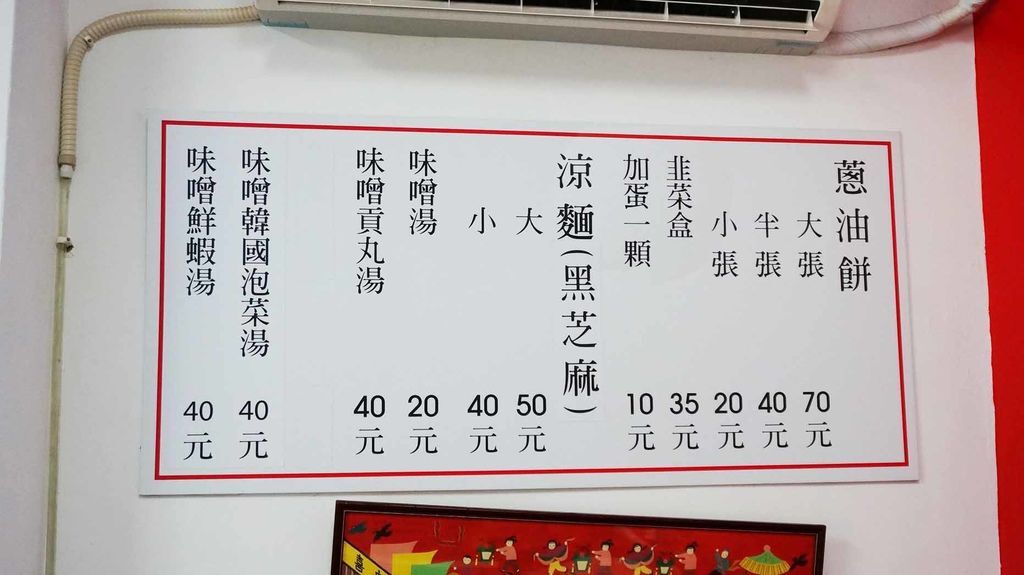 蔥油餅
大張 70元
半張 40元
小張 20元
韭菜盒 35元
加蛋一顆 10元
涼麵(黑芝麻)
大 50元
小 40元
味噌湯 20元
味噌貢丸湯 40元
味噌韓國泡菜湯 40元
味噌鮮蝦湯 40元